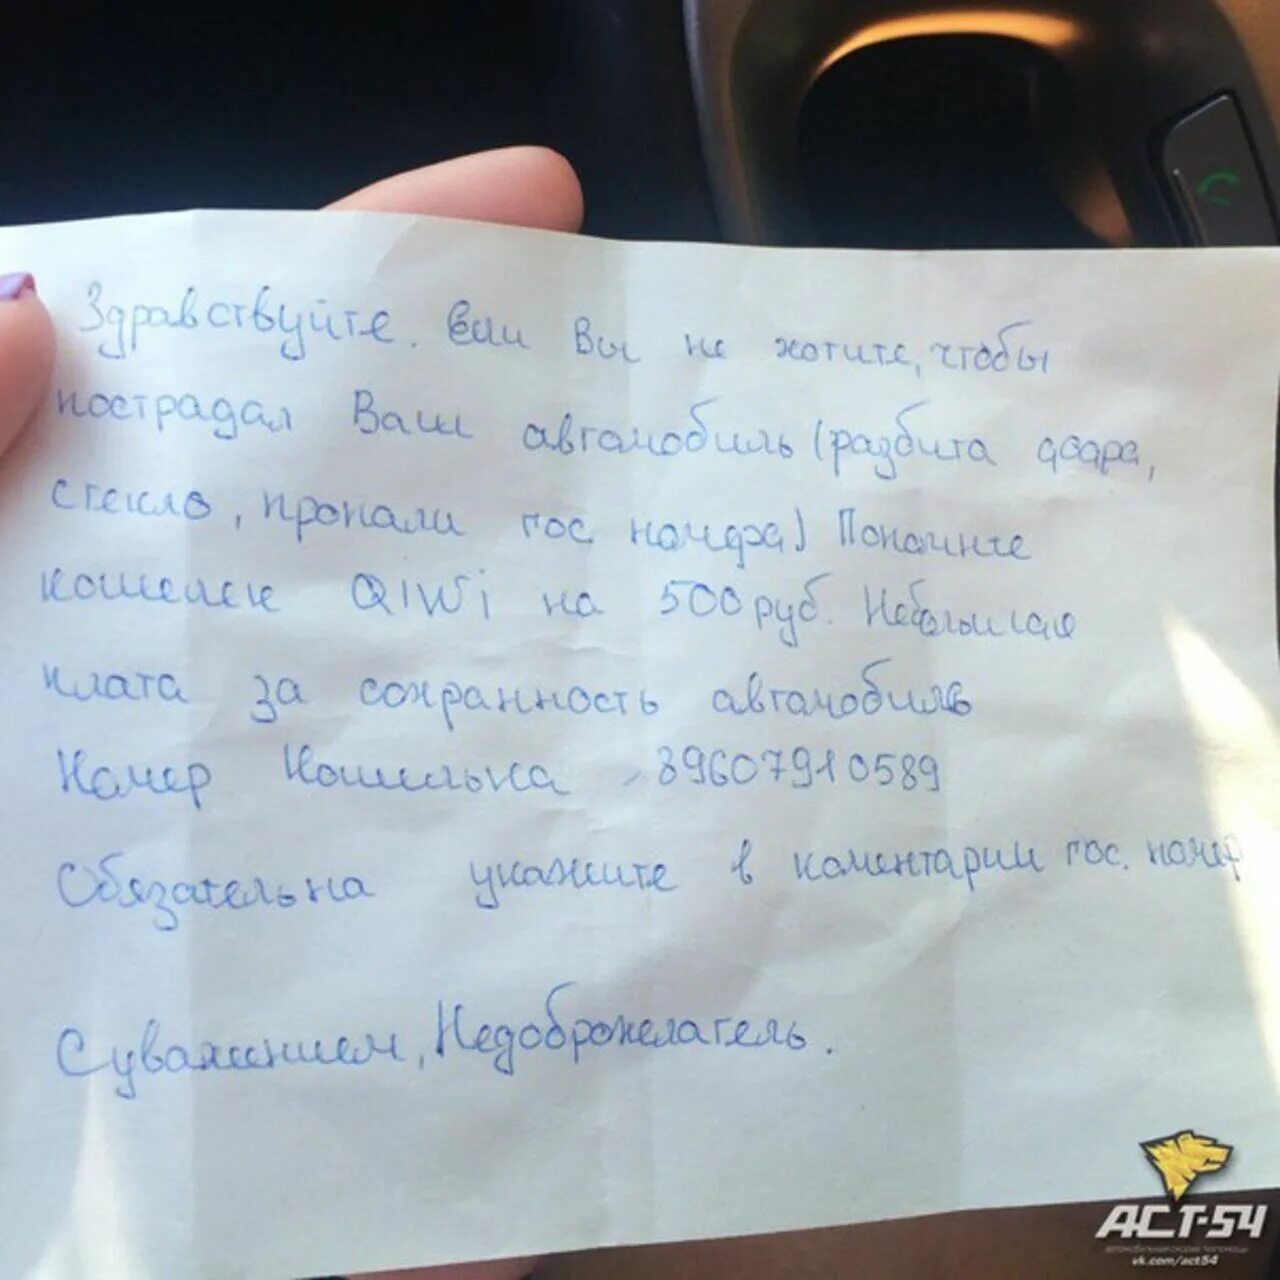 Здравствуйте. Если Вы не хотите, чтобы
пострадал Ваш автомобиль (разбита фара,
стекло, пропали гос. номера) Пополните
кошелек QIWi на 500 руб. Небольшая
плата за сохранность автомобиля
Номер Кошелька 89607910589
Обязательна укажите в коментарии гос. номер
С уважением, Недоброжелатель.
АСТ-54
vk.com/act54